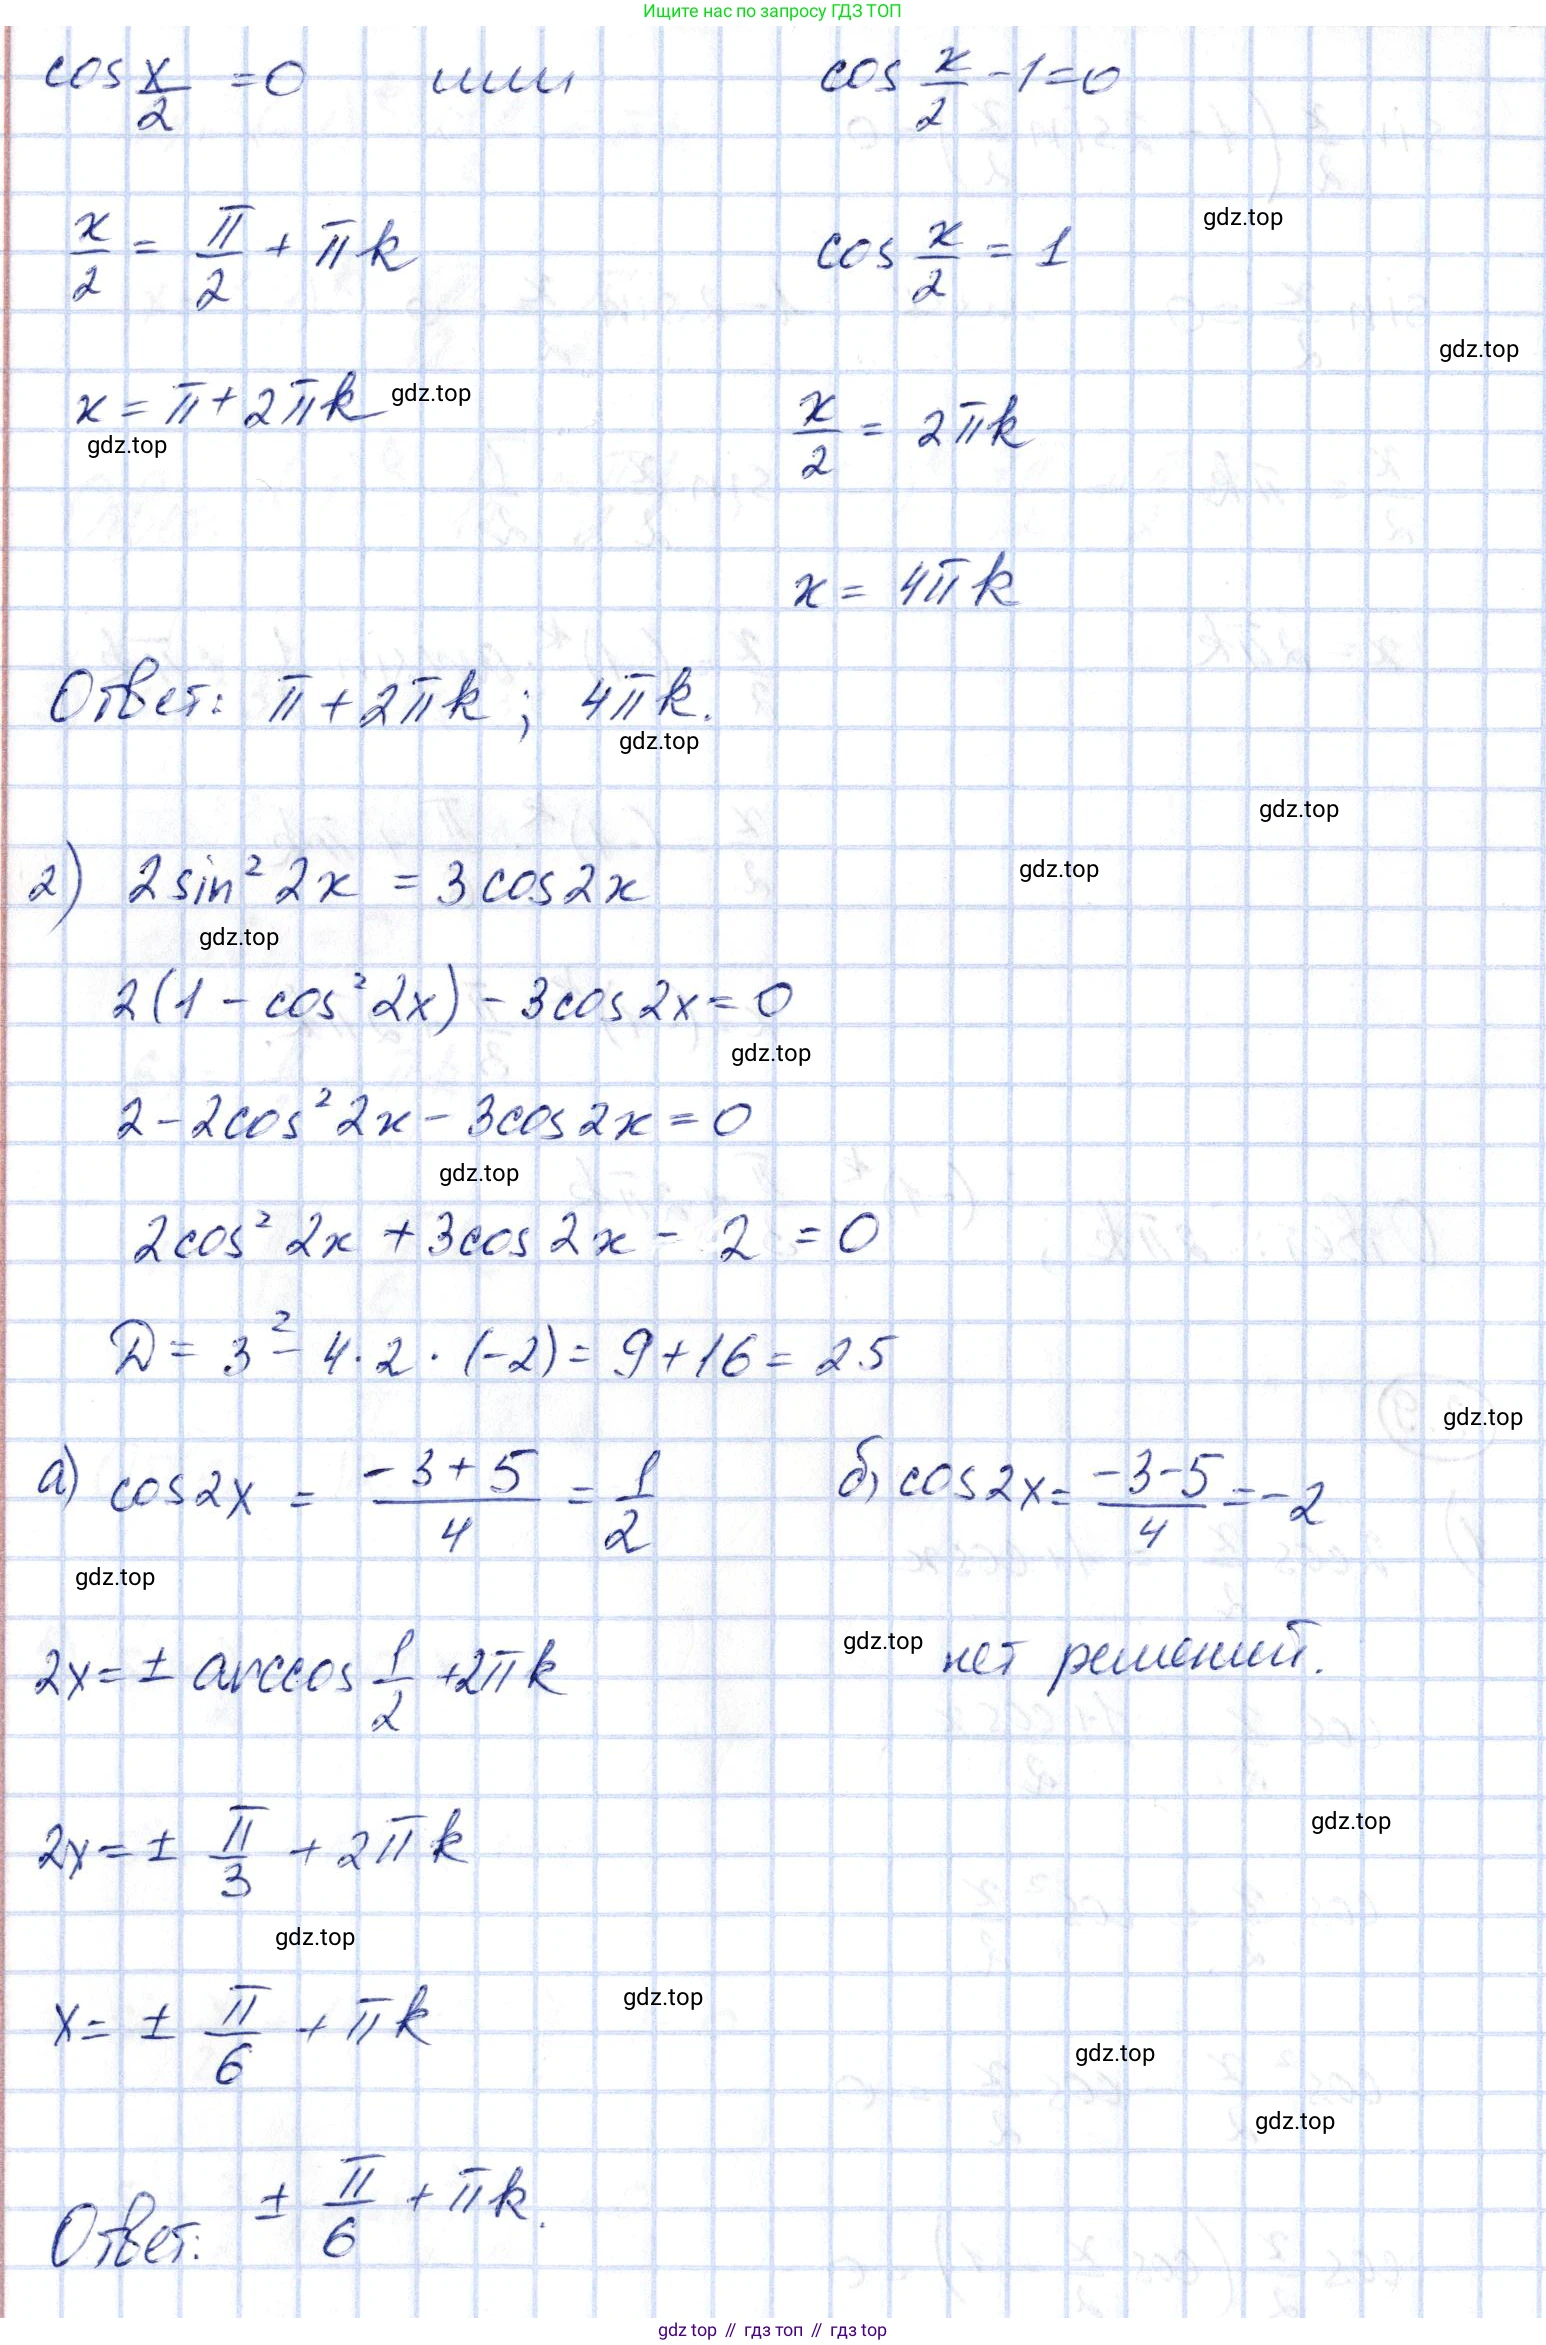 Ищите нас по запросу ГДЗ ТОП
cos x/2 = 0 или cos x/2 - 1 = 0
x/2 = π/2 + πk cos x/2 = 1
gdz.top
gdz.top
x = π + 2πk gdz.top x/2 = 2πk
gdz.top
x = 4πk
Ответ: π + 2πk ; 4πk.
gdz.top
gdz.top
2) 2sin² 2x = 3cos2x
gdz.top
gdz.top
2(1 - cos² 2x) - 3cos2x = 0
gdz.top
2 - 2cos² 2x - 3cos2x = 0
gdz.top
2cos² 2x + 3cos2x - 2 = 0
D = 3² - 4·2·(-2) = 9 + 16 = 25
gdz.top
а) cos2x = (-3+5)/4 = 1/2 б) cos2x = (-3-5)/4 = -2
gdz.top
2x = ± arccos 1/2 + 2πk gdz.top нет решений.
gdz.top
2x = ± π/3 + 2πk
gdz.top
gdz.top
x = ± π/6 + πk
gdz.top
gdz.top
Ответ: ± π/6 + πk.
gdz top // гдз топ // гдз top